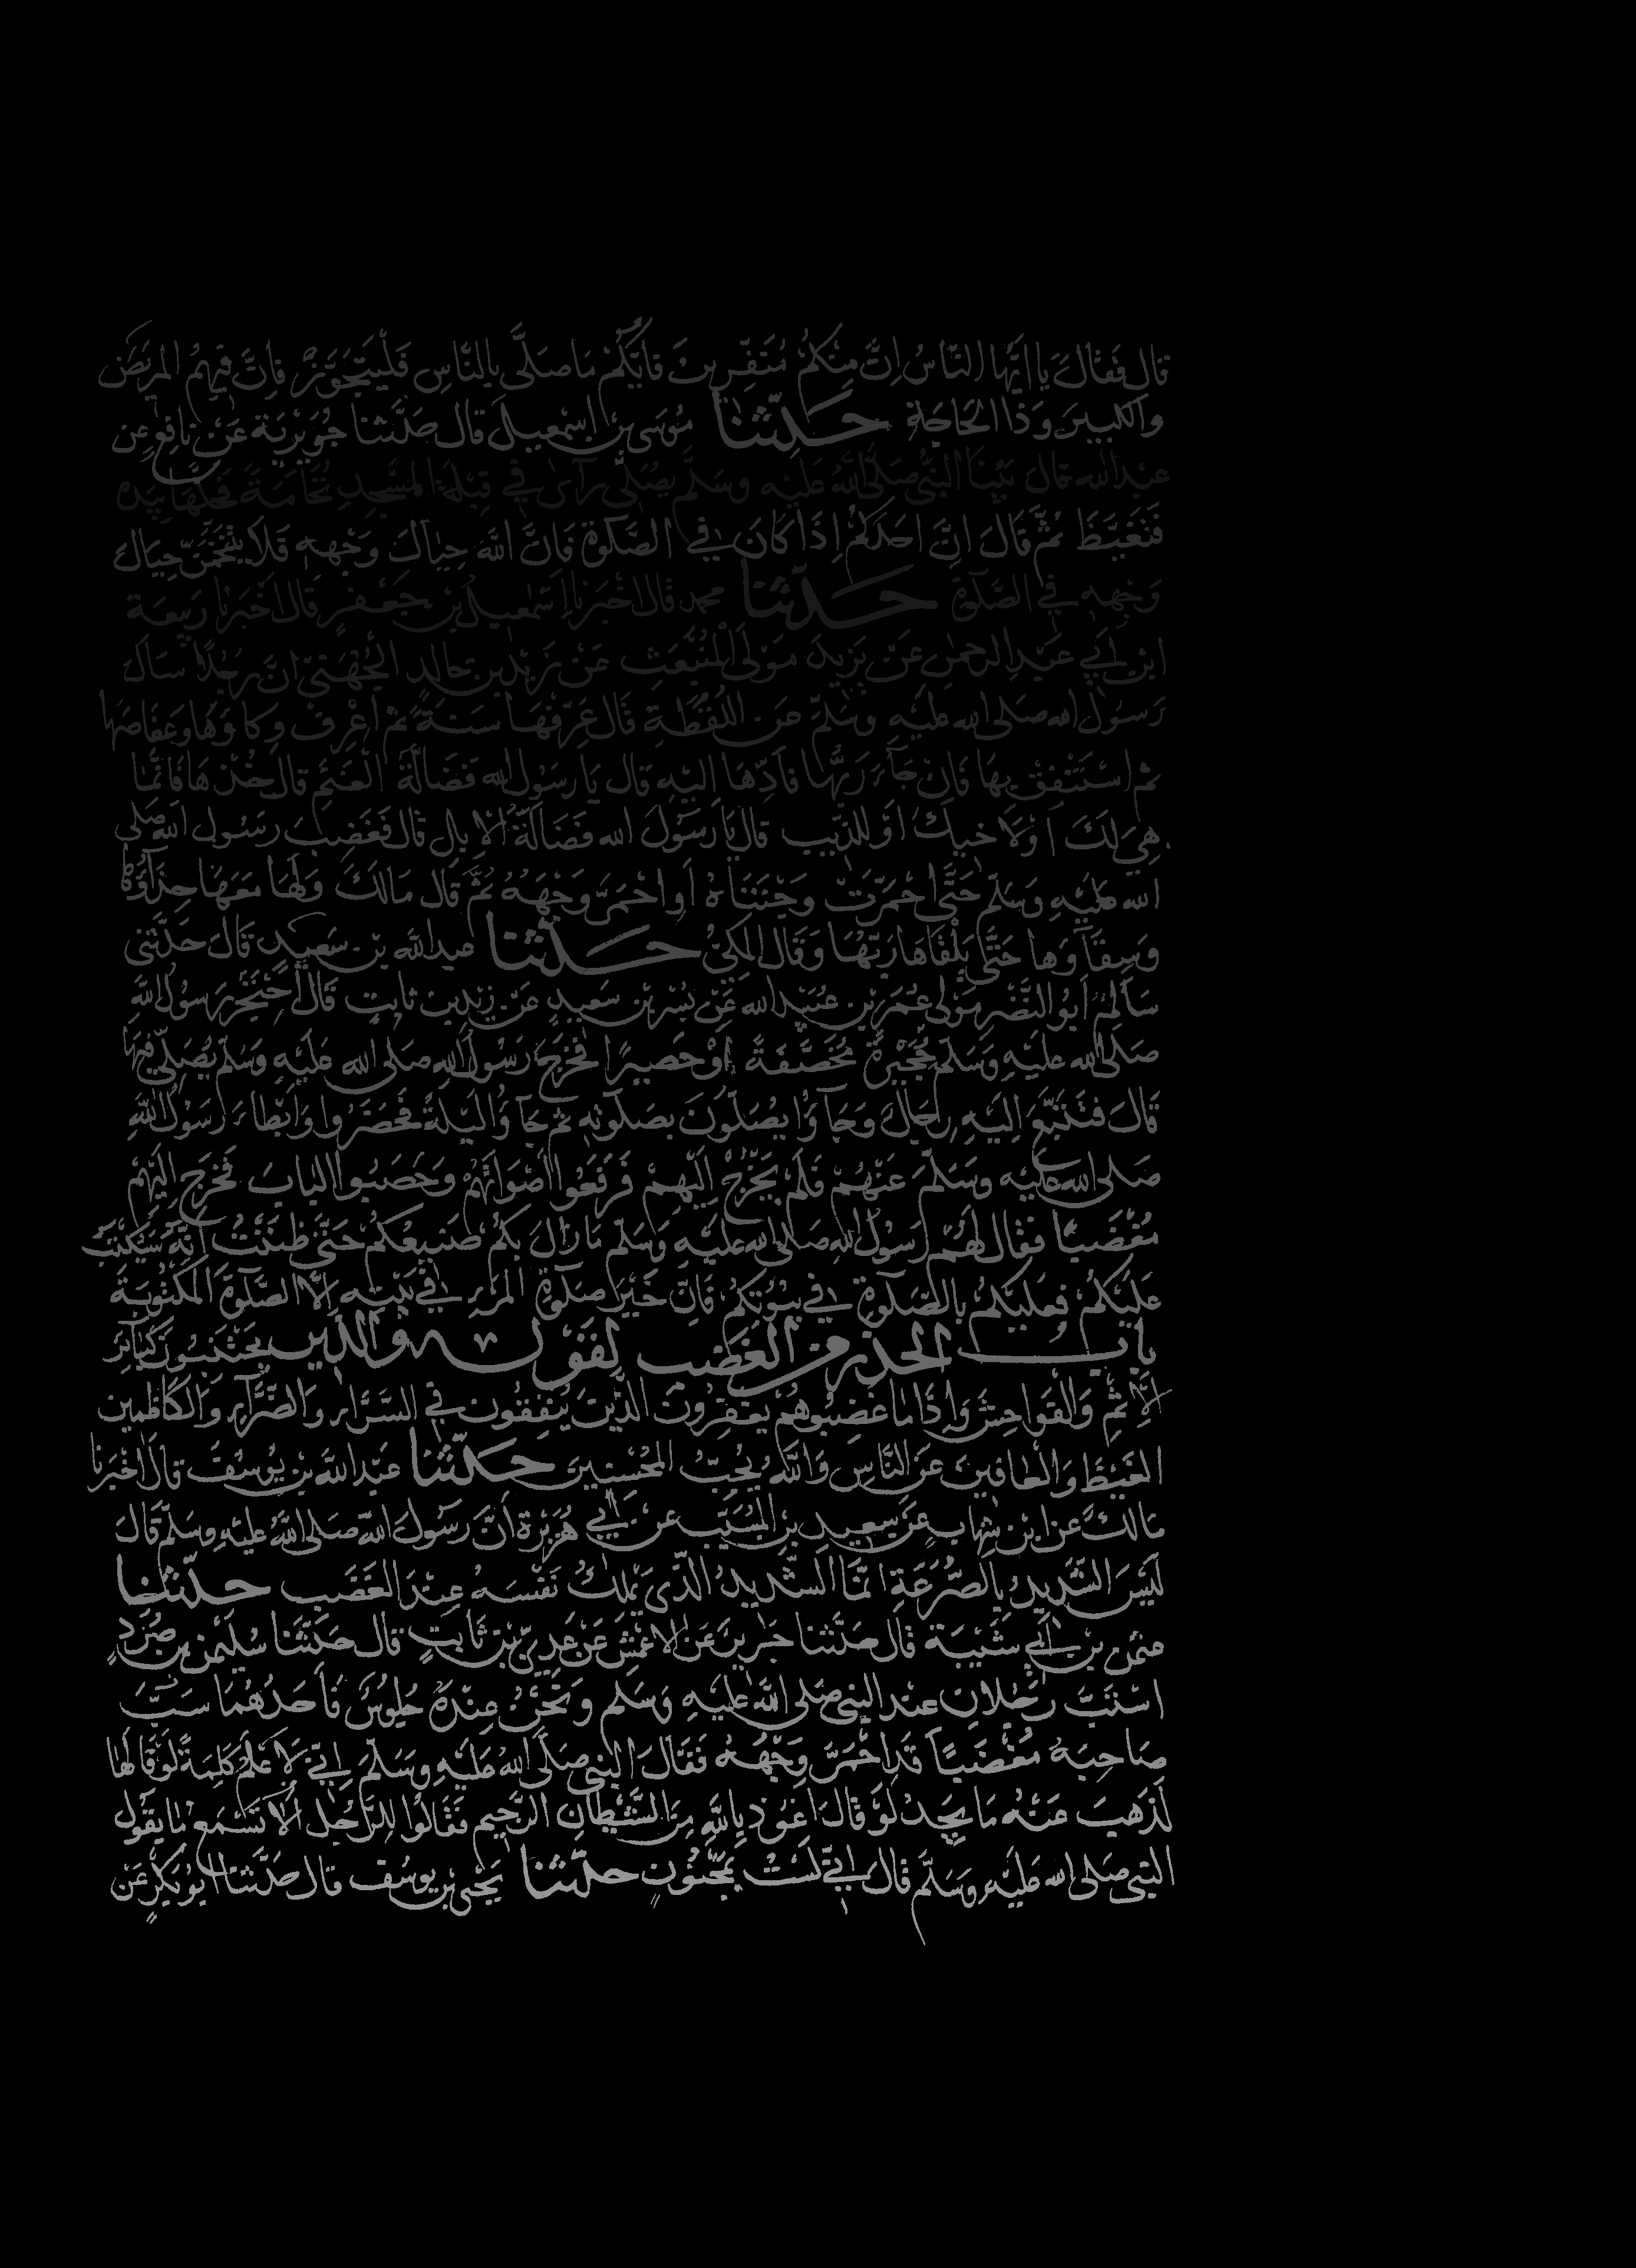 قال فَقَالَ يا ايّها النّاسُ اِنَّ مِنكمْ مُنَفِّرينَ فايّكمْ مَا صَلَّى بالنّاسِ فَلْيَتَجَوَّزْ فانَّ فيهِمُ المَريضَ
والكبيرَ وَذا الحَاجَةِ حَدثنا مُوسَى بن اسمعيلَ قال حَدَّثنا جُوَيْرِيَةُ عَنْ نافعٍ عن
عبد الله قالَ بَيْنَا النبىُّ صَلَّى اللهُ عَليْهِ وسَلَّم يُصَلّى رآى في قِبْلَةِ المَسْجِدِ نُخَامَةً فحكّها بيَدِه
فَتَغَيَّظَ ثُمَّ قَالَ اِنَّ احَدَكُمْ اِذَا كَانَ في الصَّلوةِ فَانَّ اللهَ حِيَالَ وَجْهِهِ فَلَا يَتَنَخَّمَنَّ حِيَالَ
وَجْهِهِ في الصَّلوةِ حَدثنا محمد قال اخْبَرَنا اِسْمعيلُ بْن جَعْفَر قَال اَخْبَرَنا رَبيعَة
ابن اَبي عَبْدِ الرحمن عَنْ يَزيدَ مَوْلَى الْمُنْبَعِثِ عَنْ زَيْدِ بن خالدٍ الجُهَنيّ انَّ رَجُلاً سَأَلَ
رَسولَ الله صلى الله عليْهِ وسَلَّم عَنِ اللُّقَطَةِ قَال عَرِّفْهَا سَنَةً ثُمّ اعْرِفْ وِكاءَهَا وَعِفَاصَهَا
ثم اسْتَنْفِقْ بِهَا فَانْ جَاءَ رَبُّهَا فأدِّهَا اليْهِ قال يَا رسَوُل الله فَضَالَّةُ الْغَنَمِ قال خُذْهَا فَانَّمَا
هِيَ لَكَ اَوْ لاَخيكَ اَوْ لِلذّئبِ قال يَا رَسُولَ الله فَضَالَّةُ الابِل قال فَغَضِبَ رسَول اللهِ صَلى
الله عليْهِ وَسَلّم حَتَّى احْمَرّتْ وَجْنَتَاهُ اَو احْمَرَّ وَجْهُهُ ثُمَّ قال مَالَكَ وَلَهَا مَعَهَا حِذَاؤُهَا
وَسِقَاؤُها حَتَّى يَلْقَاهَا رَبُّهَا وَقَال المَكىُّ حَدثنا عبد الله بْن سَعِيدٍ قَالَ حَدَّثَنى
سَالمُ اَبُو النَّضْر مَوْلى عُمَرَ بْن عُبَيْدِ الله عَنْ بُسْرِ بْن سَعيدٍ عَنْ زَيْدِ بن ثابتٍ قَال احْتَجَرَ رَسُولُ اللهِ
صَلَّى الله عليْهِ وَسَلّم حُجَيْرةً مُخَصَّفَةً اَوْ حَصيرًا فخرجَ رَسُول الله صَلى الله عَلَيْهِ وَسَلّم يُصَلّي فيهَا
قَالَ فَتَتَبَّعَ اِليْهِ رِجَالٌ وَجَاؤُا يُصَلّونَ بصَلوتِهِ ثم جَاؤُا ليْلَةً فحَضَرُوا وَابْطأ رَسُولُ اللهِ
صَلى الله عليْه وسَلّمَ عَنهُمْ فَلمْ يَخْرُجْ اليْهِمْ فَرَفَعُوا اصْوَاتَهُمْ وَحَصَبُوا الباب فخرجَ اليْهِمْ
مُغْضَبًا فَقال لَهُمْ رَسُول الله صلى الله عليْهِ وَسَلّم مَا زَالَ بكُمْ صَنِيعُكُمْ حَتَّى ظَنَنْتُ انّهُ سَيُكْتَبُ
عَليْكُمْ فعليْكُمْ بالصّلوةِ في بيُوتكُمْ فَانَّ خَيْرَ صَلوةِ المَرْءِ في بَيْتِهِ الاّ الصَّلوةَ المَكْتُوبَةَ
باب الحذر من الغَضَب لقَوْله والّذين يَجْتَنِبُونَ كَبَائِرَ
الاِثْمِ وَالْفَوَاحِشَ وَاِذَا مَا غَضِبُوا هُمْ يَغْفِرُونَ الَّذينَ يُنْفِقُون فى السَّرَّاء وَالضَّرَّاءِ وَالكَاظِمين
الغَيْظَ وَالْعافينَ عَن النَّاسِ وَاللّهُ يُحِبُّ المُحْسنينَ حَدثنا عَبْد الله بن يُوسُفَ قَال اخْبَرَنا
مَالكٌ عَن ابْن شِهَابٍ عَن سَعِيدِ بن المُسَيّبِ عَن ابي هُرَيْرَةَ انَّ رَسُولَ اللهِ صَلَى اللهُ عليْهِ وسَلّم قَالَ
لَيْسَ الشَّديدُ بالصُّرَعَةِ انّمَا الشَّديدُ الَّذى يَملكُ نَفْسَهُ عِنْدَ الغَضَبِ حَدثنا
عثمن بن ابي شَيْبَةَ قال حَدّثنا جَرير عَن الاعْمَشِ عَنْ عَدِيّ بن ثابتٍ قال حَدّثنا سُليْمن بن صُرَدٍ
اسْتَبَّ رَجُلان عند النبى صَلى اللهُ عليْهِ وَسَلم وَنَحْنُ عِنْدَهُ جُلُوسٌ فأحَدُهُمَا سَبَّ
صَاحِبَهُ مُغْضَبًا قَد احْمَرَّ وَجْهُهُ فَقَالَ النبى صَلَّى اللهُ عَليْهِ وَسَلَّمَ اِنّي لَاَعْلَمُ كَلِمَةً لَوْ قَالهَا
لَذَهَبَ عَنْهُ مَا يَجِدُ لَوْ قَال اَعُوذُ بِاللَّهِ مِنَ الشَّيْطانِ الرَّجيمِ فَقَالُوا للرّجُل اَلا تَسْمَع مَا يقُول
النبى صَلى الله عَليْهِ وسَلّم قال اِنّي لَسْتُ بمَجْنُونٍ حدثنا يَحْيى بن يوسُف قال حَدَّثنَا ابُو بَكرٍ عَنْ